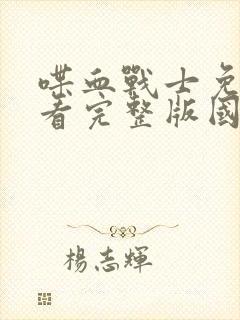 喋血戰士免
看完整版國
楊志輝